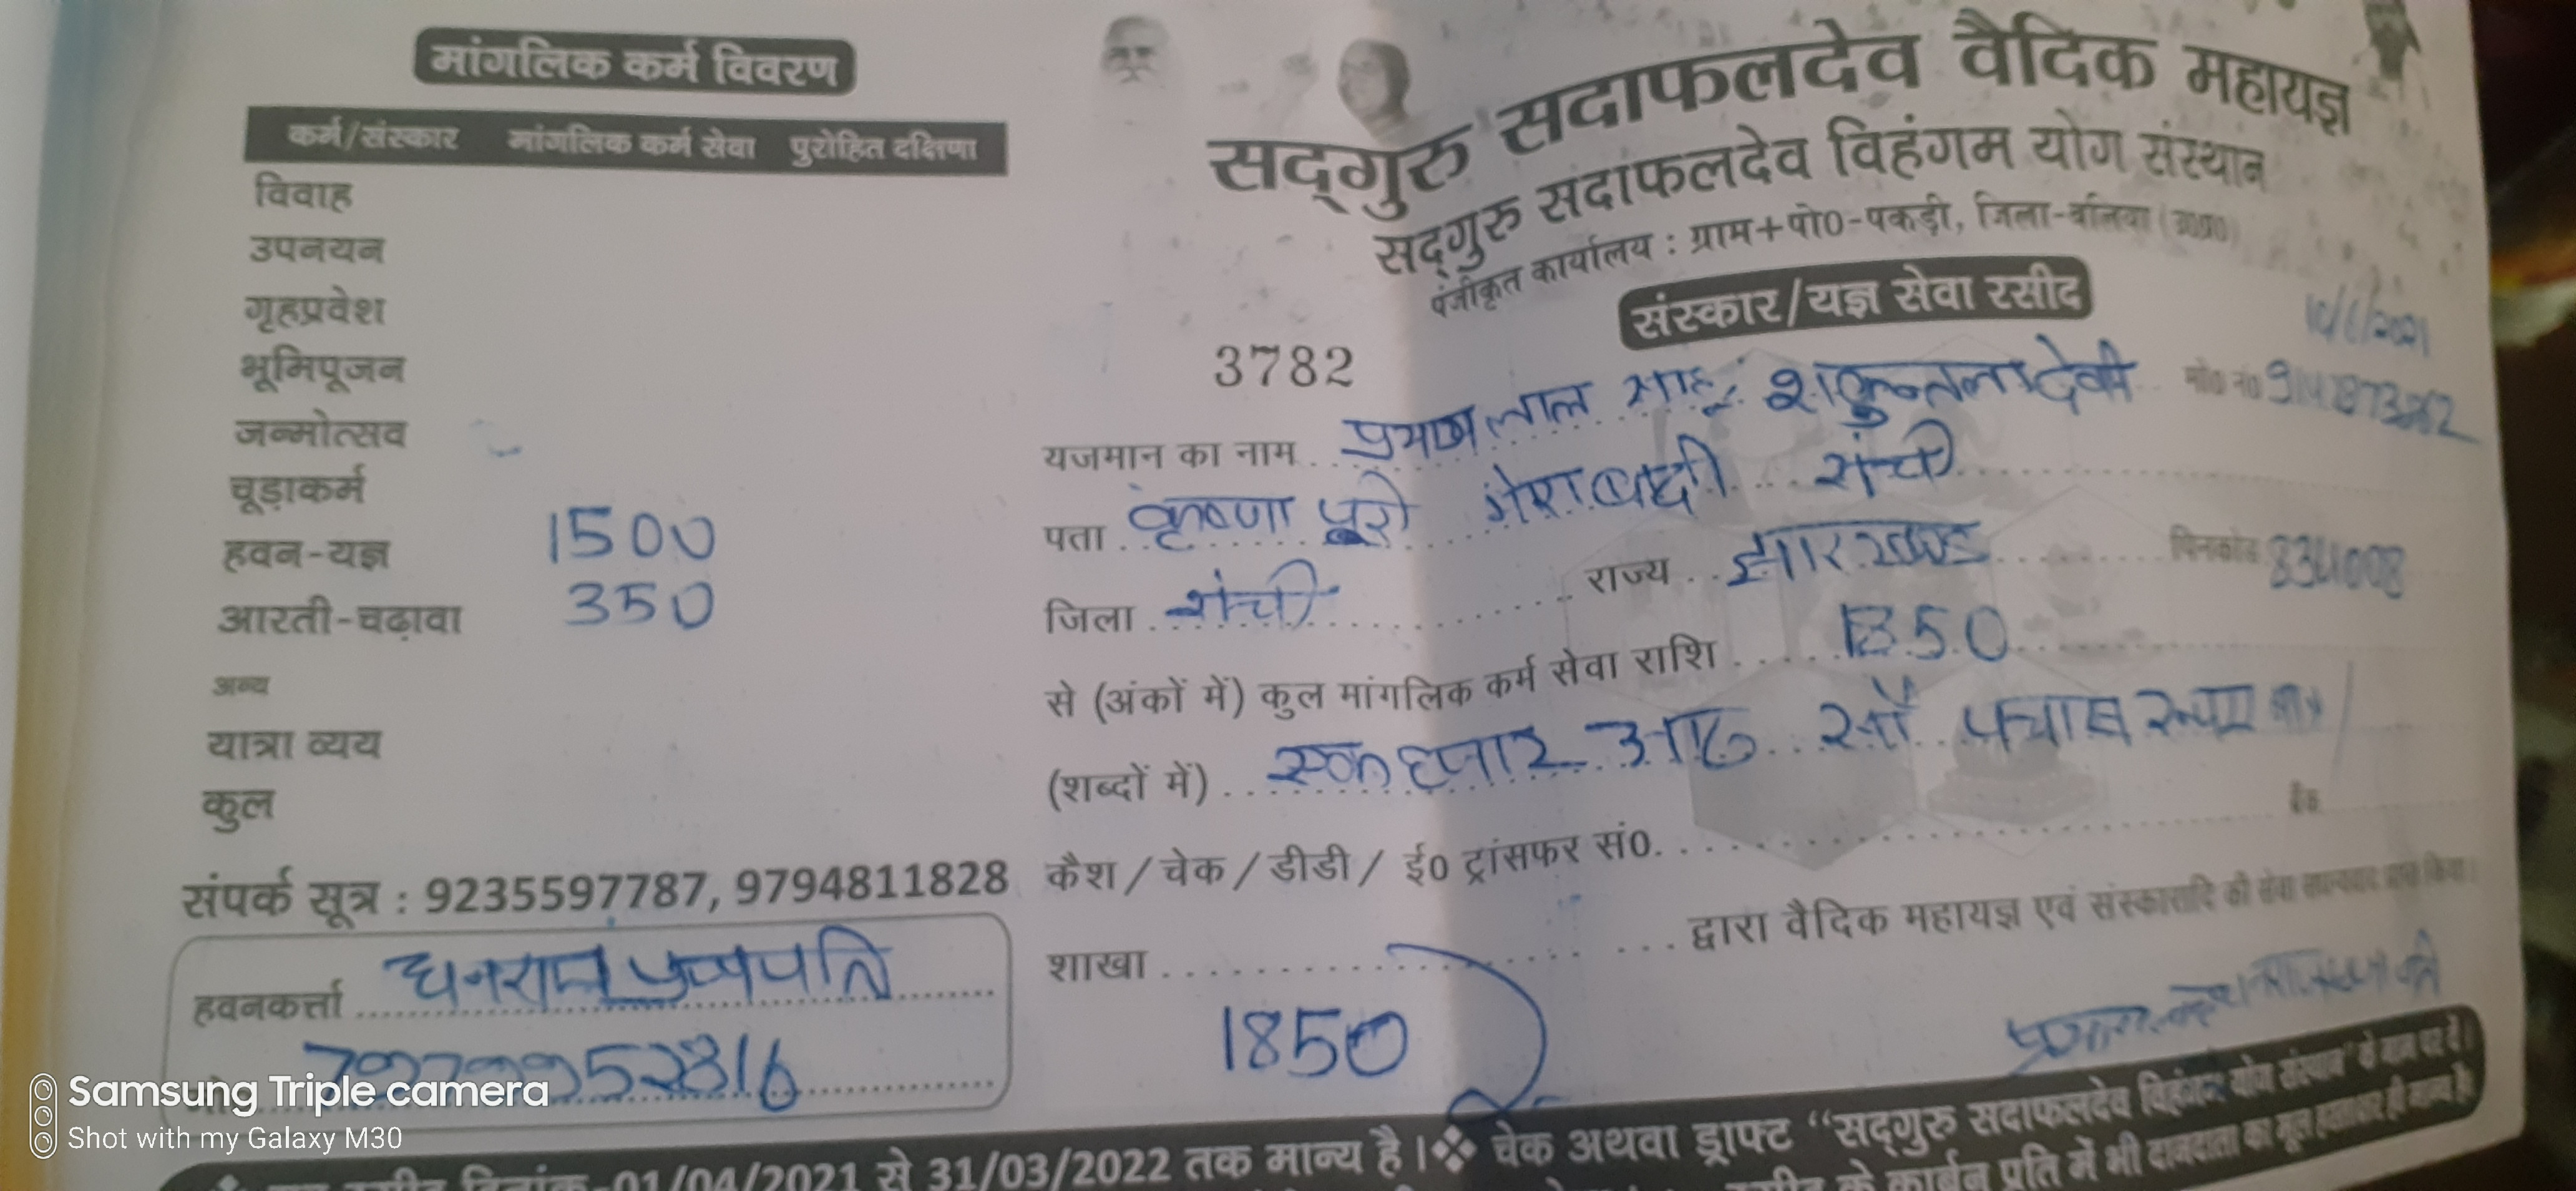 मांगलिक कर्म विवरण
कर्म/संस्कार मांगलिक कर्म सेवा पुरोहित दक्षिणा
विवाह
उपनयन
गृहप्रवेश
भूमिपूजन
जन्मोत्सव
चूड़ाकर्म
हवन-यज्ञ 1500
आरती-चढ़ावा 350
अन्य
यात्रा व्यय
कुल
संपर्क सूत्र : 9235597787, 9794811828
हवनकर्त्ता धनराज
सद्गुरु सदाफलदेव वैदिक महायज्ञ
सद्गुरु सदाफलदेव विहंगम योग संस्थान
पंजीकृत कार्यालय : ग्राम+पो0-पकड़ी, जिला-बलिया (उ0प्र0)
संस्कार/यज्ञ सेवा रसीद
3782
यजमान का नाम लाल साहू शकुन्तला देवी मो0 नं0
पता कृष्णा पूरी रांची
जिला रांची राज्य झारखण्ड पिनकोड
से (अंकों में) कुल मांगलिक कर्म सेवा राशि
(शब्दों में) एक हजार आठ सौ पचास
कैश / चेक / डीडी / ई0 ट्रांसफर सं0
शाखा द्वारा वैदिक महायज्ञ एवं संस्कारादि की सेवा
1850
दिनांक-01/04/2021 से 31/03/2022 तक मान्य है। ❖ चेक अथवा ड्राफ्ट "सद्गुरु सदाफलदेव विहंगम योग संस्थान" के
के कार्बन प्रति में भी दानदाता का मूल हस्ताक्षर ही मान्य है
Samsung Triple camera
Shot with my Galaxy M30